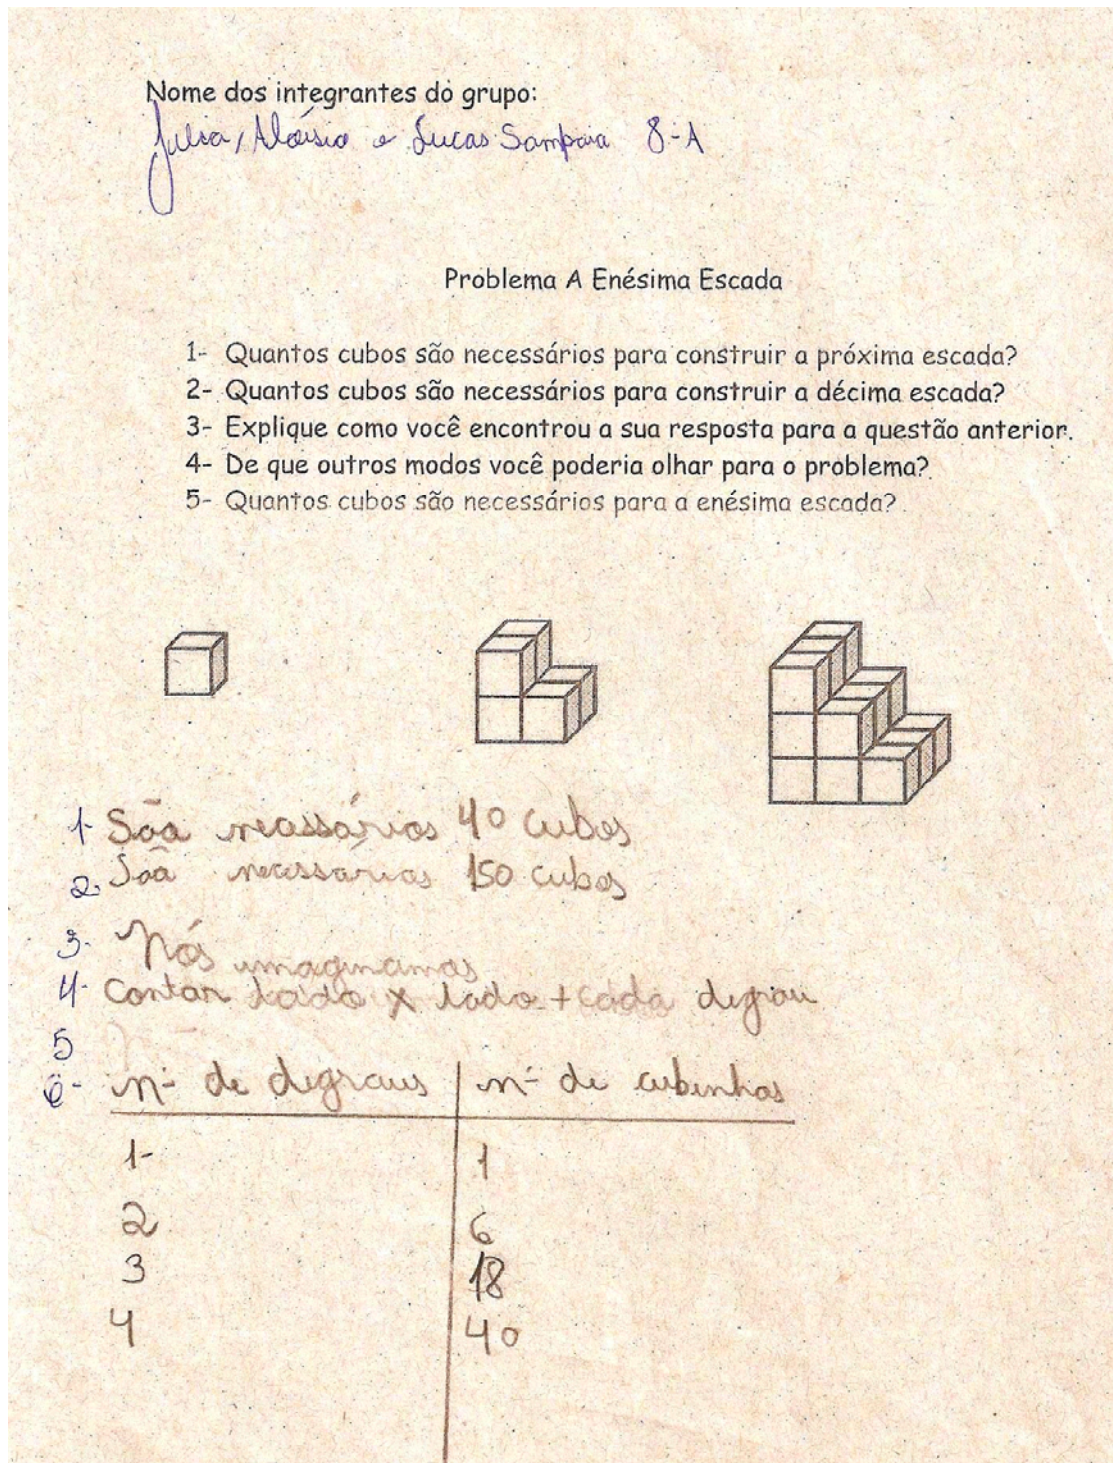 Nome dos integrantes do grupo:
Julia, Aloísio e Lucas Sampaia 8-A
Problema A Enésima Escada
1- Quantos cubos são necessários para construir a próxima escada?
2- Quantos cubos são necessários para construir a décima escada?
3- Explique como você encontrou a sua resposta para a questão anterior.
4- De que outros modos você poderia olhar para o problema?
5- Quantos cubos são necessários para a enésima escada?
1- São necessários 40 cubos
2- São necessários 150 cubos
3- Nós imaginamos
4- Contar lado x lado + cada degrau
5
6- nº de degraus nº de cubinhos
1- 1
2 6
3 18
4 40